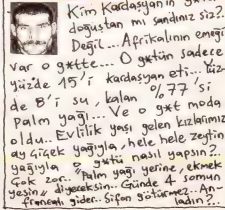 Kim Kardasyan'ın g*tü
doğuştan mı sandınız siz?.
Değil... Afrikalının emeği
var o g*tte... O g*tün sadece
yüzde 15'i kardasyan eti... Yüz-
de 8'i su, kalan %77'si
Palm yağı... Ve o g*t moda
oldu.. Evlilik yaşı gelen kızlarımız
ay çiçek yağıyla, hele hele zeytin
yağıyla o g*tü nasıl yapsın?..
Çok zor.. "Palm yağı yerine, ekmek
yesin" diyeceksin.. Günde 4 somun
francala gider.. Sifon götürmez.. An-
ladın?..